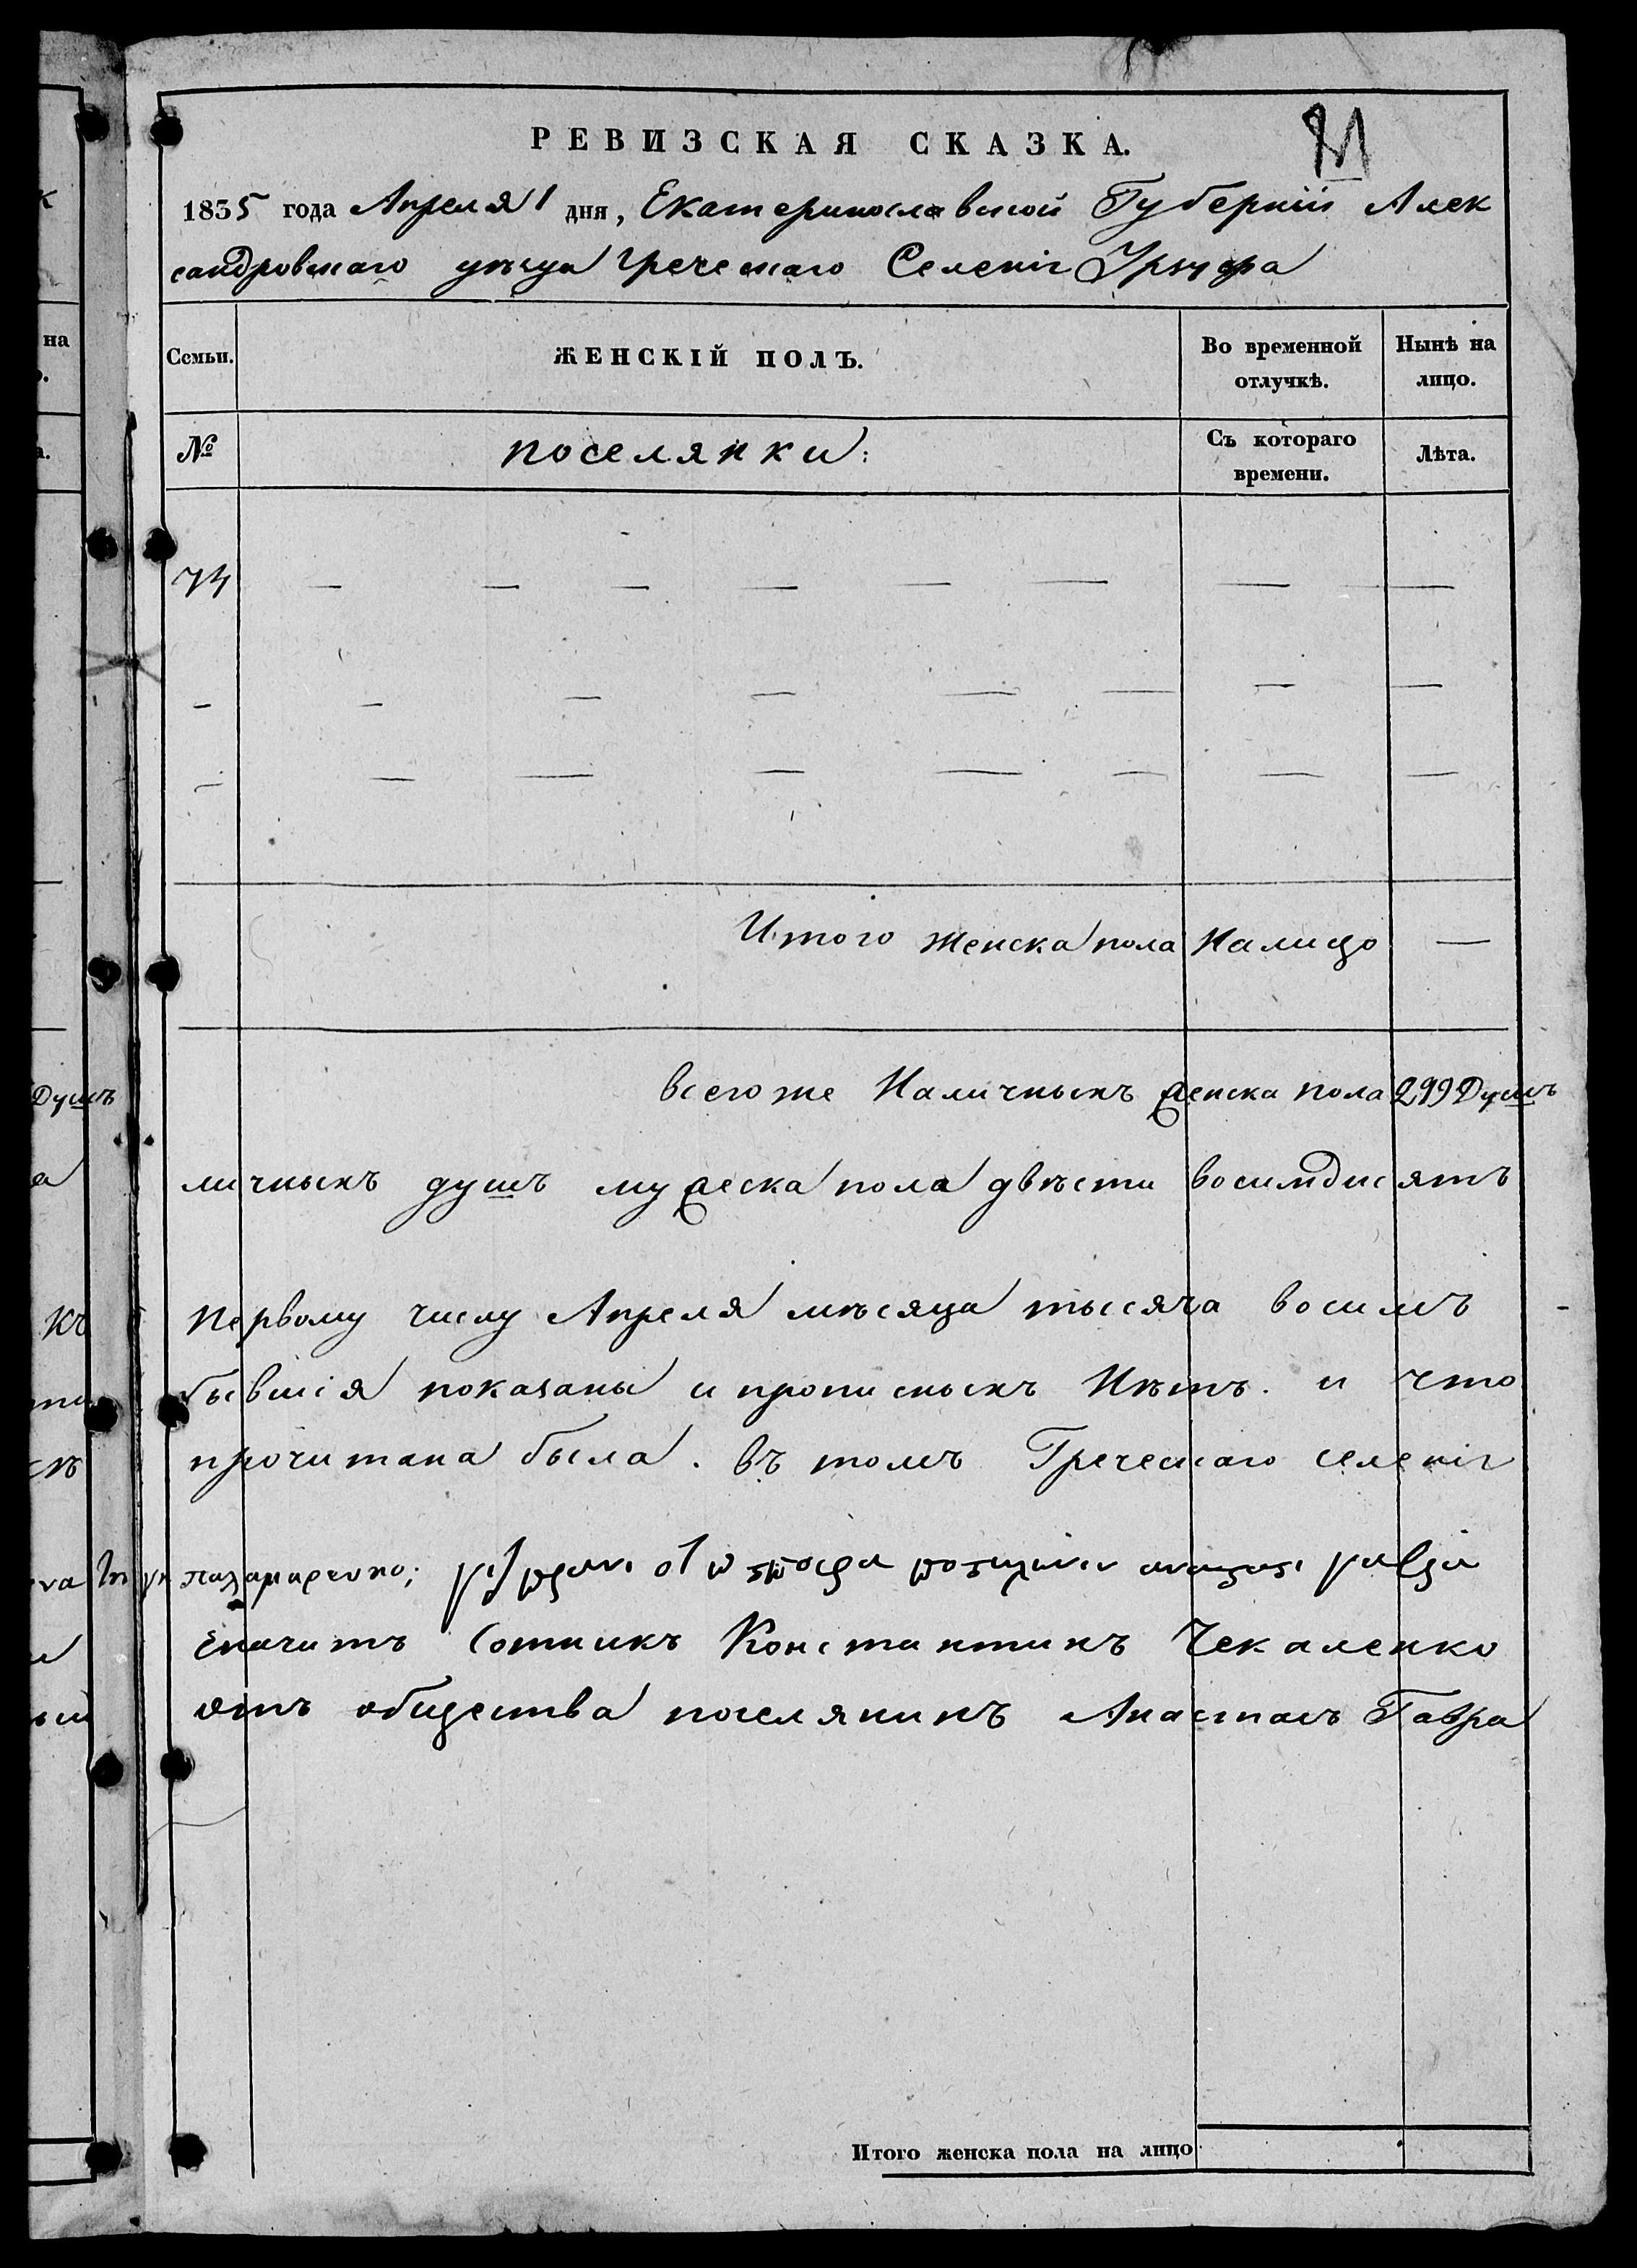 РЕВИЗСКАЯ СКАЗКА.
1835 года Апреля 1 дня, Екатеринославской Губернiи Алек
сандровскаго уѣзда Греческаго Селенiя
Семьи. ЖЕНСКIЙ ПОЛЪ. Во временной отлучкѣ. Нынѣ на лицо.
№ поселянки: Съ котораго времени. Лѣта.
74 — — — — — — — —
— — — — — — — —
— — — — — — — —
Итого женска пола На лицо —
всего же Наличныхъ женска пола 299 Душъ
личныхъ душъ мужеска пола двѣсти восимдисятъ
первому числу Апреля мѣсяца тысяча восимъ -
бывшiя показаны и прописныхъ Нѣтъ. и что
прочитана была. въ томъ Греческаго селенiя
значитъ Сотникъ Константинъ Чекаленко
отъ общества поселянинъ Анастасъ Гавра
Итого женска пола на лицо
Душъ
на
къ